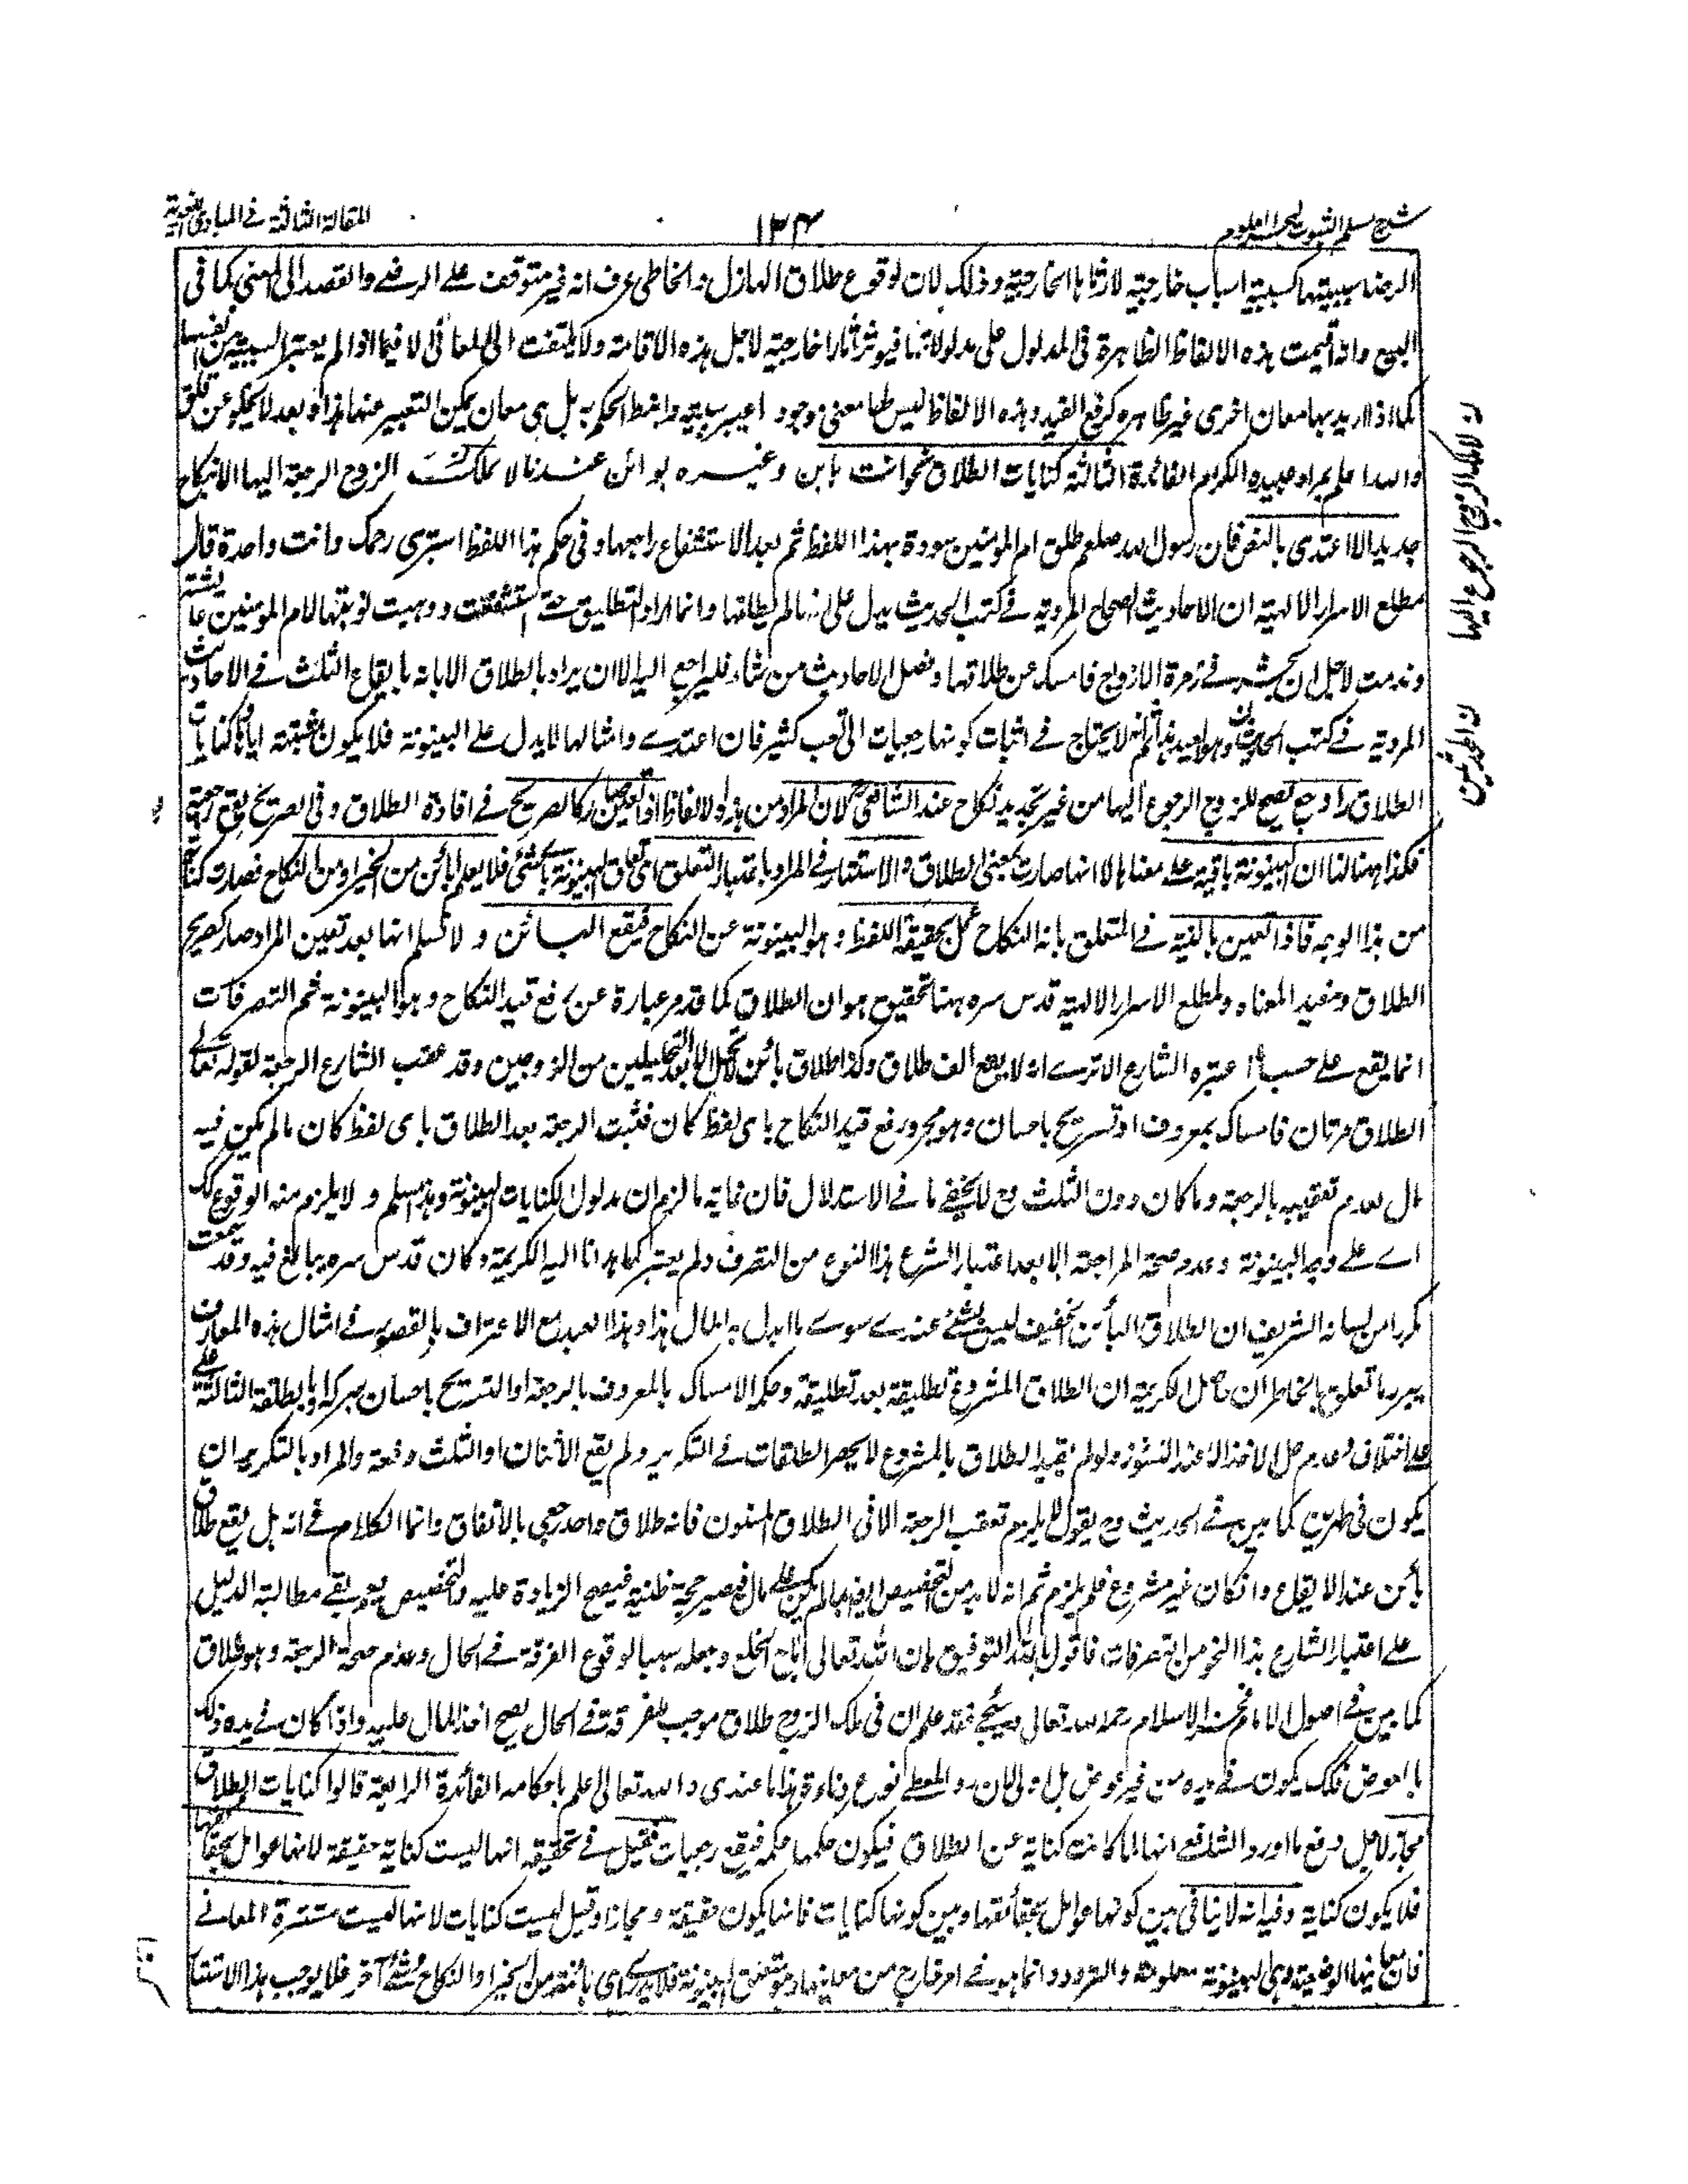 شرح مسلم الثبوت لبحر العلوم
١٣٤
المقالة الثالثة في المبادي اللغوية
الرضا بسببيتها كسببية اسباب خارجية لاثارها الخارجية وذلك لان لوقوع طلاق الهازل والخاطي عرف انه غير متوقف على الرضى والقصد الى المعنى كما في
البيع وانه اقيمت هذه الالفاظ الظاهرة في المدلول على مدلولاتها فيؤثر آثارا خارجية لاجل هذه الاقامة ولا يلتفت الى المعاني لا فيما اذا لم يعتبر السببية من نفسها
كما اذا اريد بها معان اخرى غير ظاهره كرفع القيد وهذه الالفاظ ليس لها معنى موجود اعتبر سببيته وانيط الحكم به بل هي معان يمكن التعبير عنها هذا وبعد لا يخلو عن قلق
والله اعلم بمراد عبيده الكرام الفائدة الثالثة كنايات الطلاق نحو انت باين وغيره بوائن عندنا لا يملك الزوج الرجعة اليها الا بنكاح
جديد الا اعتدى بالنص فان رسول الله صلعم طلق ام المومنين سودة بهذا اللفظ ثم بعد الاستشفاع راجعها وفي حكم هذا اللفظ استبرى رحمك وانت واحدة قال
مطلع الاسرار الالهية ان الاحاديث الصحاح المروية في كتب الحديث يدل على انه لم يطلقها وانما اراد التطليق حتى استشفعت ووهبت نوبتها لام المومنين عايشة
وندمت لاجل ان يحشر في زمرة الازواج فامسك عن طلاقها وفصل الاحاديث من شاء فليراجع اليه الا ان يراد بالطلاق الابانة بايقاع الثلث في الاحاديث
المروية في كتب الحديث وهو بعيد ثم انه لا يحتاج في اثبات كونها رجعيات الى تعب كثير فان اعتدى وامثالها لا يدل على البينونة فلا يكون مثبتة اياها كنايات
الطلاق رواجع يصح للزوج الرجوع اليها من غير تجديد نكاح عند الشافعي لان المراد من هذه الالفاظ الطلاق كالصريح في افادة الطلاق وفي الصريح يقع رجعية
فكذا ههنا لنا ان البينونة باقية على معناها لا انها صارت بمعنى الطلاق والاستتار في المراد باعتبار التعلق اي تعلق البينونة باي شئ فلا يعلم بائن من الخير او من النكاح فصارت كناية
من هذا الوجه فاذا تعين بالنية في المتعلق بانه النكاح عمل بحقيقة اللفظ وهو البينونة عن النكاح فيقع البائن ولا نسلم انها بعد تعين المراد صار كصريح
الطلاق ومفيد المعناه ولمطلع الاسرار الالهية قدس سره ههنا تحقيق هو ان الطلاق كما قد مر عبارة عن رفع قيد النكاح وهو البينونة ثم التصرفات
انما يقع على حسب ما اعتبره الشارع الا ترى انه لا يقع الف طلاق وكذا طلاق بائن من الزوجين وقد عقب الشارع الرجعة لقوله تعالى
الطلاق مرتان فامساك بمعروف او تسريح باحسان وهو مجرد رفع قيد النكاح باى لفظ كان فثبت الرجعة بعد الطلاق باى لفظ كان ما لم يكن فيه
مال لعدم تعقيبه بالرجعة وما كان دون الثلث وح لا يخفى ما في الاستدلال فان غاية ما لزم ان مدلول الكنايات البينونة وهذا مسلم ولا يلزم منه الوقوع كذلك
اى على وجه البينونة وعدم صحة المراجعة الا بعد اعتبار الشرع هذا النوع من التصرف ولم يعتبر كما هدانا اليه الكريمة وكان قدس سره يبالغ فيه وقد سمعت
مكررا من لسانه الشريف ان الطلاق البائن الخفيف ليس بشئ عندى سوى ما بدل به المال هذا وهذا العبد مع الاعتراف بالقصور في امثال هذه المعارف
يبرز ما تعلق بالخاطر ان حاصل الكريمة ان الطلاق المشروع تطليقة بعد تطليقة وحكمه الامساك بالمعروف بالرجعة او التسريح باحسان بتركها او بالطلقة الثالثة على
على اختلاف وعدم حل الاخذ الا عند النشوز ولو لم يقيد الطلاق بالمشروع لا يحصر الطلقات في التكرير ولم يقع الاثنان او الثلث دفعة والمراد بالتكرير ان
يكون في طهرين كما بين في الحديث وح يقول لا يلزم تعقب الرجعة الا في الطلاق المسنون فانه طلاق واحد رجعي بالاتفاق وانما الكلام في انه هل يقع طلاق
بائن عند الايقاع وان كان غير مشروع فلم يلزم ثم انه لابد من التخصيص ايضا بما لم يكن على مال فيصير حجة ظنية فيصح الزيادة عليه والتخصيص بقى مطالبة الدليل
على اعتبار الشارع هذا النحو من التصرفات فاقول بالله التوفيق ان الله تعالى اباح الخلع وجعله سببا لوقوع الفرقة في الحال وعدم صحة الرجعة وهو طلاق
كما بين في اصول الامام فخر الاسلام رحمه الله تعالى وسيجئ فقد علم ان في ملك الزوج طلاق موجب للفرقة في الحال يصح اخذ المال عليه واذا كان في يده ذلك
بالعوض فلك يكون في يده من غير عوض بل اولى لان هذا ما عندى والله تعالى اعلم باحكامه الفائدة الرابعة قالوا كنايات الطلاق
مجاز لاجل دفع ما اورد الشافعي انها لما كانت كناية عن الطلاق فيكون حكمها حكمه فيقع رجعيات فقيل في تحقيقه انها ليست كناية حقيقة لانها عوامل بحقائقها
فلا يكون كناية وفيه انه لا ينافي بين كونها عوامل بحقائقها وبين كونها كنايات فانها يكون حقيقة ومجازا وقيل ليست كنايات لانها ليست مستترة المعاني
فان معانيها الوضعية وهى البينونة معلومة والتردد انما هو في امر خارج من معانيها وهو متعلق البينونة فلا يدرى اى بائنة من الخير او النكاح او شئ آخر فلا يوجب هذا الاستتار